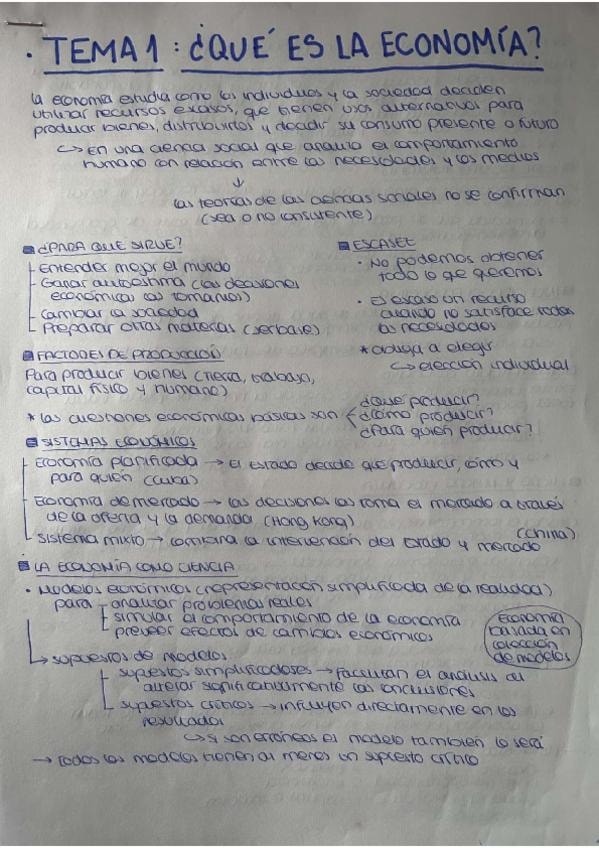 · TEMA 1 : ¿QUÉ ES LA ECONOMÍA?
La economía estudia como los individuos y la sociedad deciden
utilizar recursos escasos, que tienen usos alternativos para
producir bienes, distribuirlos y decidir su consumo presente o futuro
↳ En una ciencia social que analiza el comportamiento
humano con relación entre las necesidades y los medios
↓
Las teorías de las ciencias sociales no se confirman
(sea o no consistente)
■ ¿PARA QUE SIRVE?
- Entender mejor el mundo
- Ganar autoestima (las decisiones
económicas las tomamos)
- Cambiar la sociedad
- Preparar otras materias (ser base)
■ ESCASEZ
· No podemos obtener
todo lo que queremos
· Es escaso un recurso
cuando no satisface todas
las necesidades
* obliga a elegir
↳ elección individual
■ FACTORES DE PRODUCCIÓN
Para producir bienes (tierra, trabajo,
capital físico y humano)
* Las cuestiones económicas básicas son
¿Qué producir?
¿Cómo producir?
¿Para quién producir?
■ SISTEMAS ECONÓMICOS
- Economía planificada → El estado decide que producir, cómo y
para quién (Cuba)
- Economía de mercado → Las decisiones las toma el mercado a través
de la oferta y la demanda (Hong Kong)
- Sistema mixto → combina la intervención del estado y mercado (China)
■ LA ECONOMÍA COMO CIENCIA
· Modelos económicos (representación simplificada de la realidad)
para - analizar problemas reales
- simular el comportamiento de la economía
- preveer efectos de cambios económicos
Economía
basada en
colección
de modelos
↳ supuestos de modelos
- supuestos simplificadores → facilitan el análisis sin
alterar significativamente las conclusiones
- supuestos críticos → influyen directamente en los
resultados
↳ si son erróneos el modelo también lo será
→ Todos los modelos tienen al menos un supuesto crítico